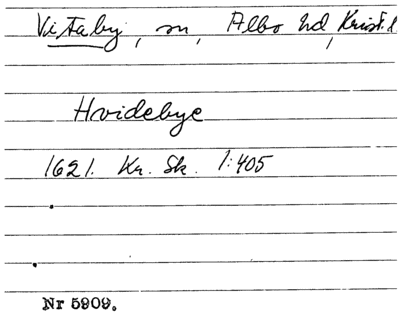 Vitaby, sn, Albo hd, Krist.l.
Hvidebye
1621. Kr. Sk. 1:405
Nr 5909.